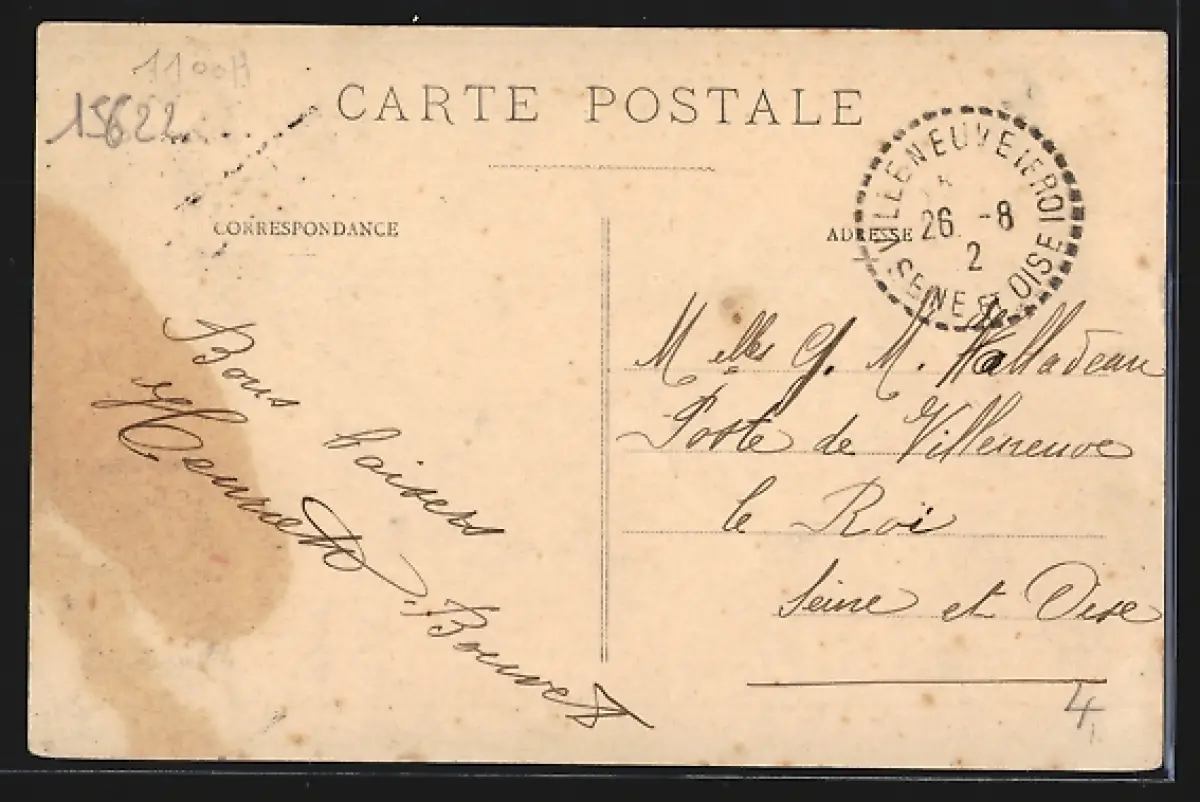 1100H
15622
CARTE POSTALE
CORRESPONDANCE
ADRESSE
VILLENEUVE LE ROI
26 -8
2
SEINE ET OISE
Bons baisers
Henriette Bouvet
Melles G. M. Halladeau
Poste de Villeneuve
le Roi
Seine et Oise
4